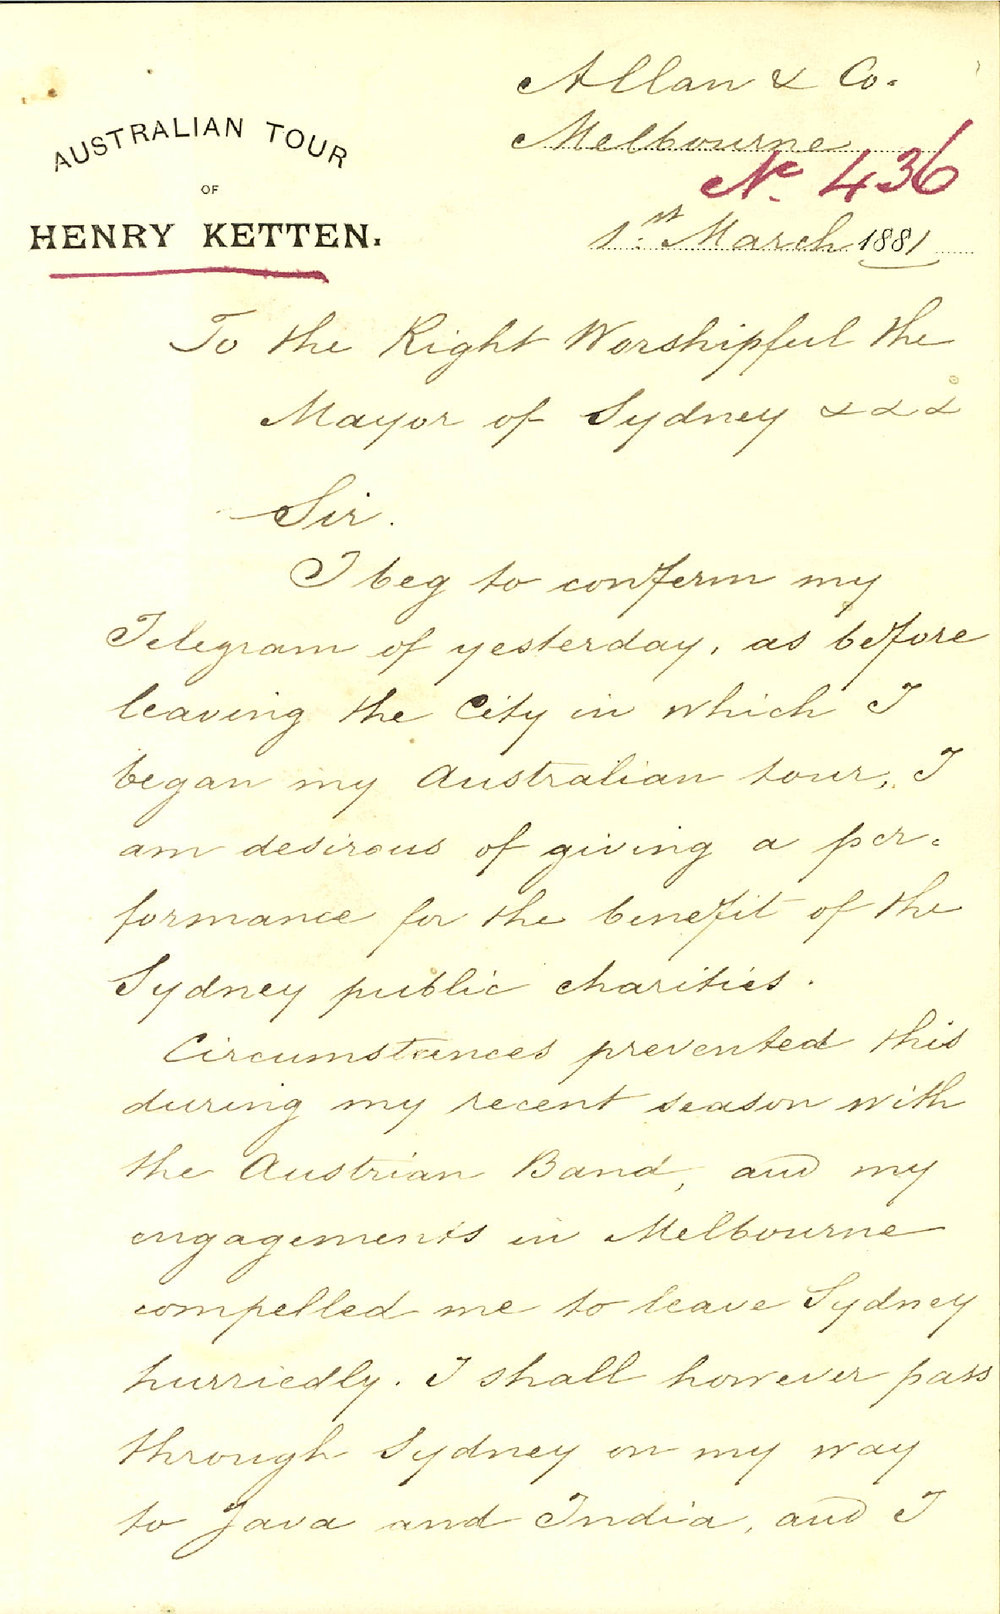 AUSTRALIAN TOUR
OF
HENRY KETTEN.
Allan & Co.
Melbourne
No. 436
1st March 1881
To the Right Worshipful the
Mayor of Sydney & & &
Sir.
I beg to confirm my
Telegram of yesterday, as before
leaving the City in which I
began my Australian tour, I
am desirous of giving a per=
formance for the benefit of the
Sydney public charities.
Circumstances prevented this
during my recent season with
the Austrian Band, and my
engagements in Melbourne
compelled me to leave Sydney
hurriedly. I shall however pass
through Sydney on my way
to Java and India, and I